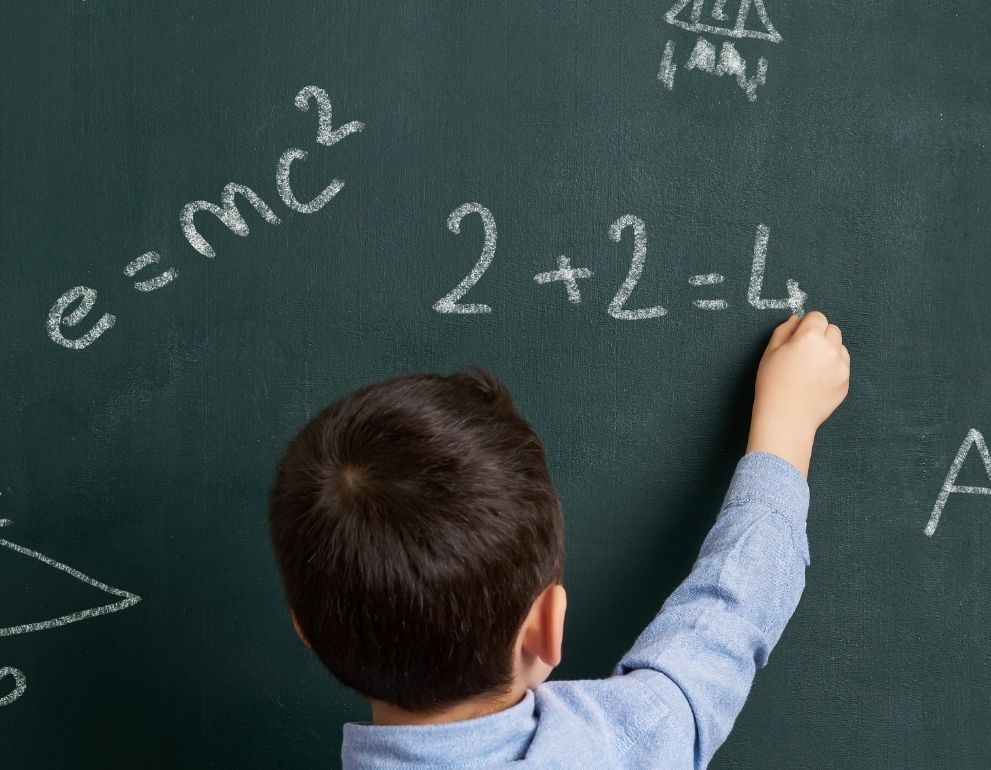 e = mc²
2 + 2 = 4
A